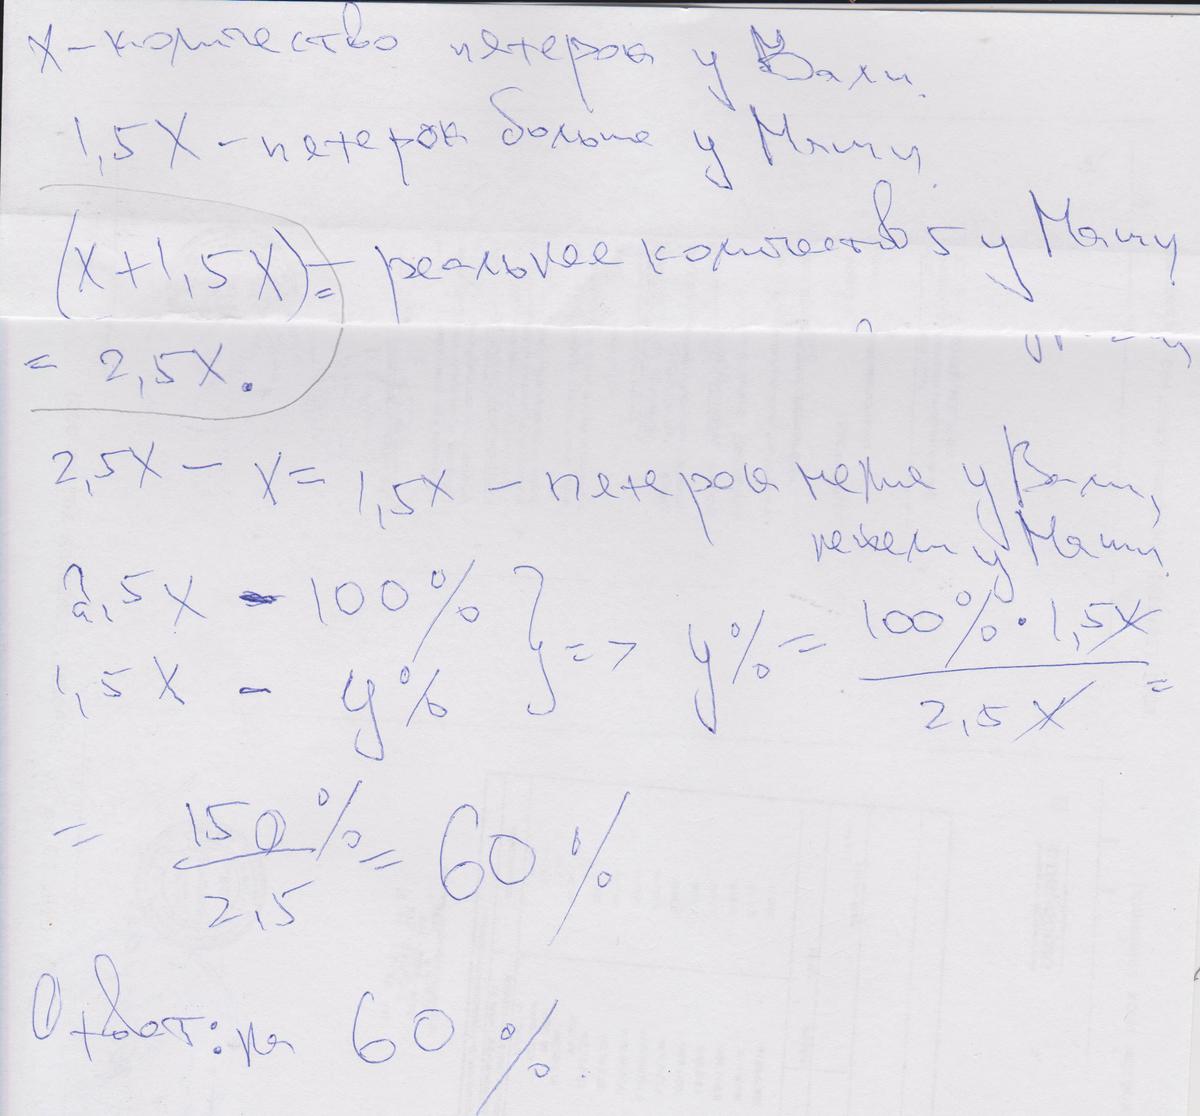 X - количество пятерок у Вали.
1,5X - пятерок больше у Маши.
(X+1,5X) - реальное количество 5 у Маши
=
= 2,5X.
2,5X - X = 1,5X - пятерок меньше у Вали,
нежели у Маши.
2,5X - 100%
1,5X - y%
} => y% = 100% · 1,5X / 2,5X =
= 150% / 2,5 = 60%
Ответ: на 60%.